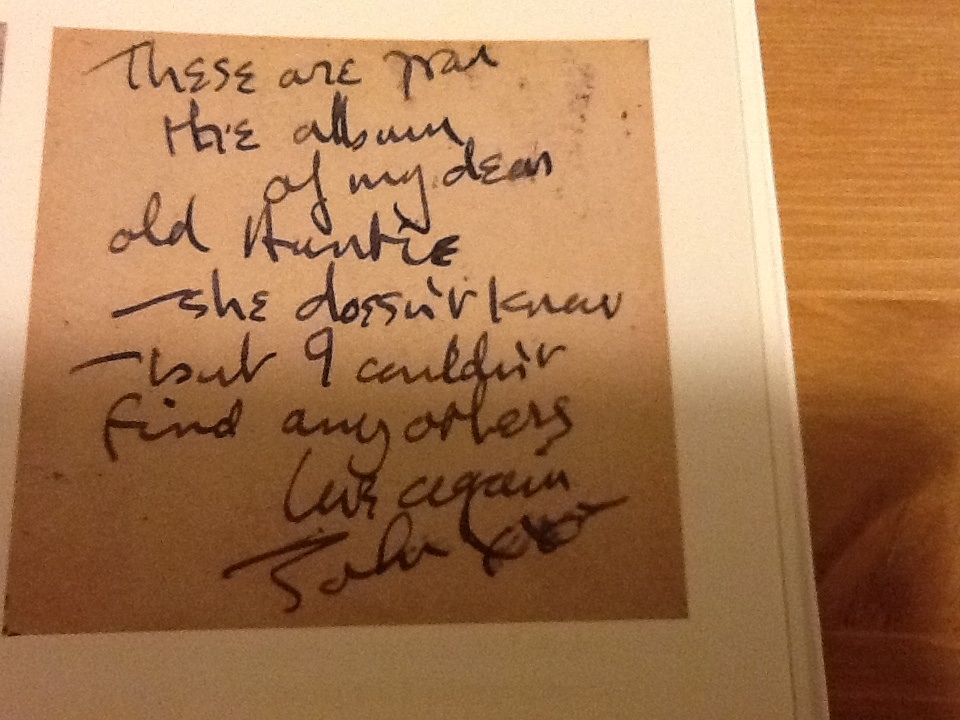 These are from
the album
of my dear
old Auntie
—she doesn't know
—but I couldn't
find any others
love again
John xxx